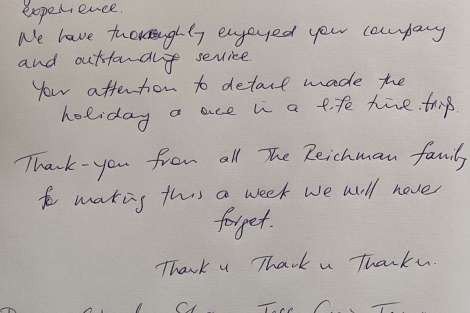 experience.
We have thoroughly enjoyed your company
and outstanding service
Your attention to detail made the
holiday a once in a life time trip.
Thank-you from all The Reichman family
for making this a week we will never
forget.
Thank u Thank u Thank u.